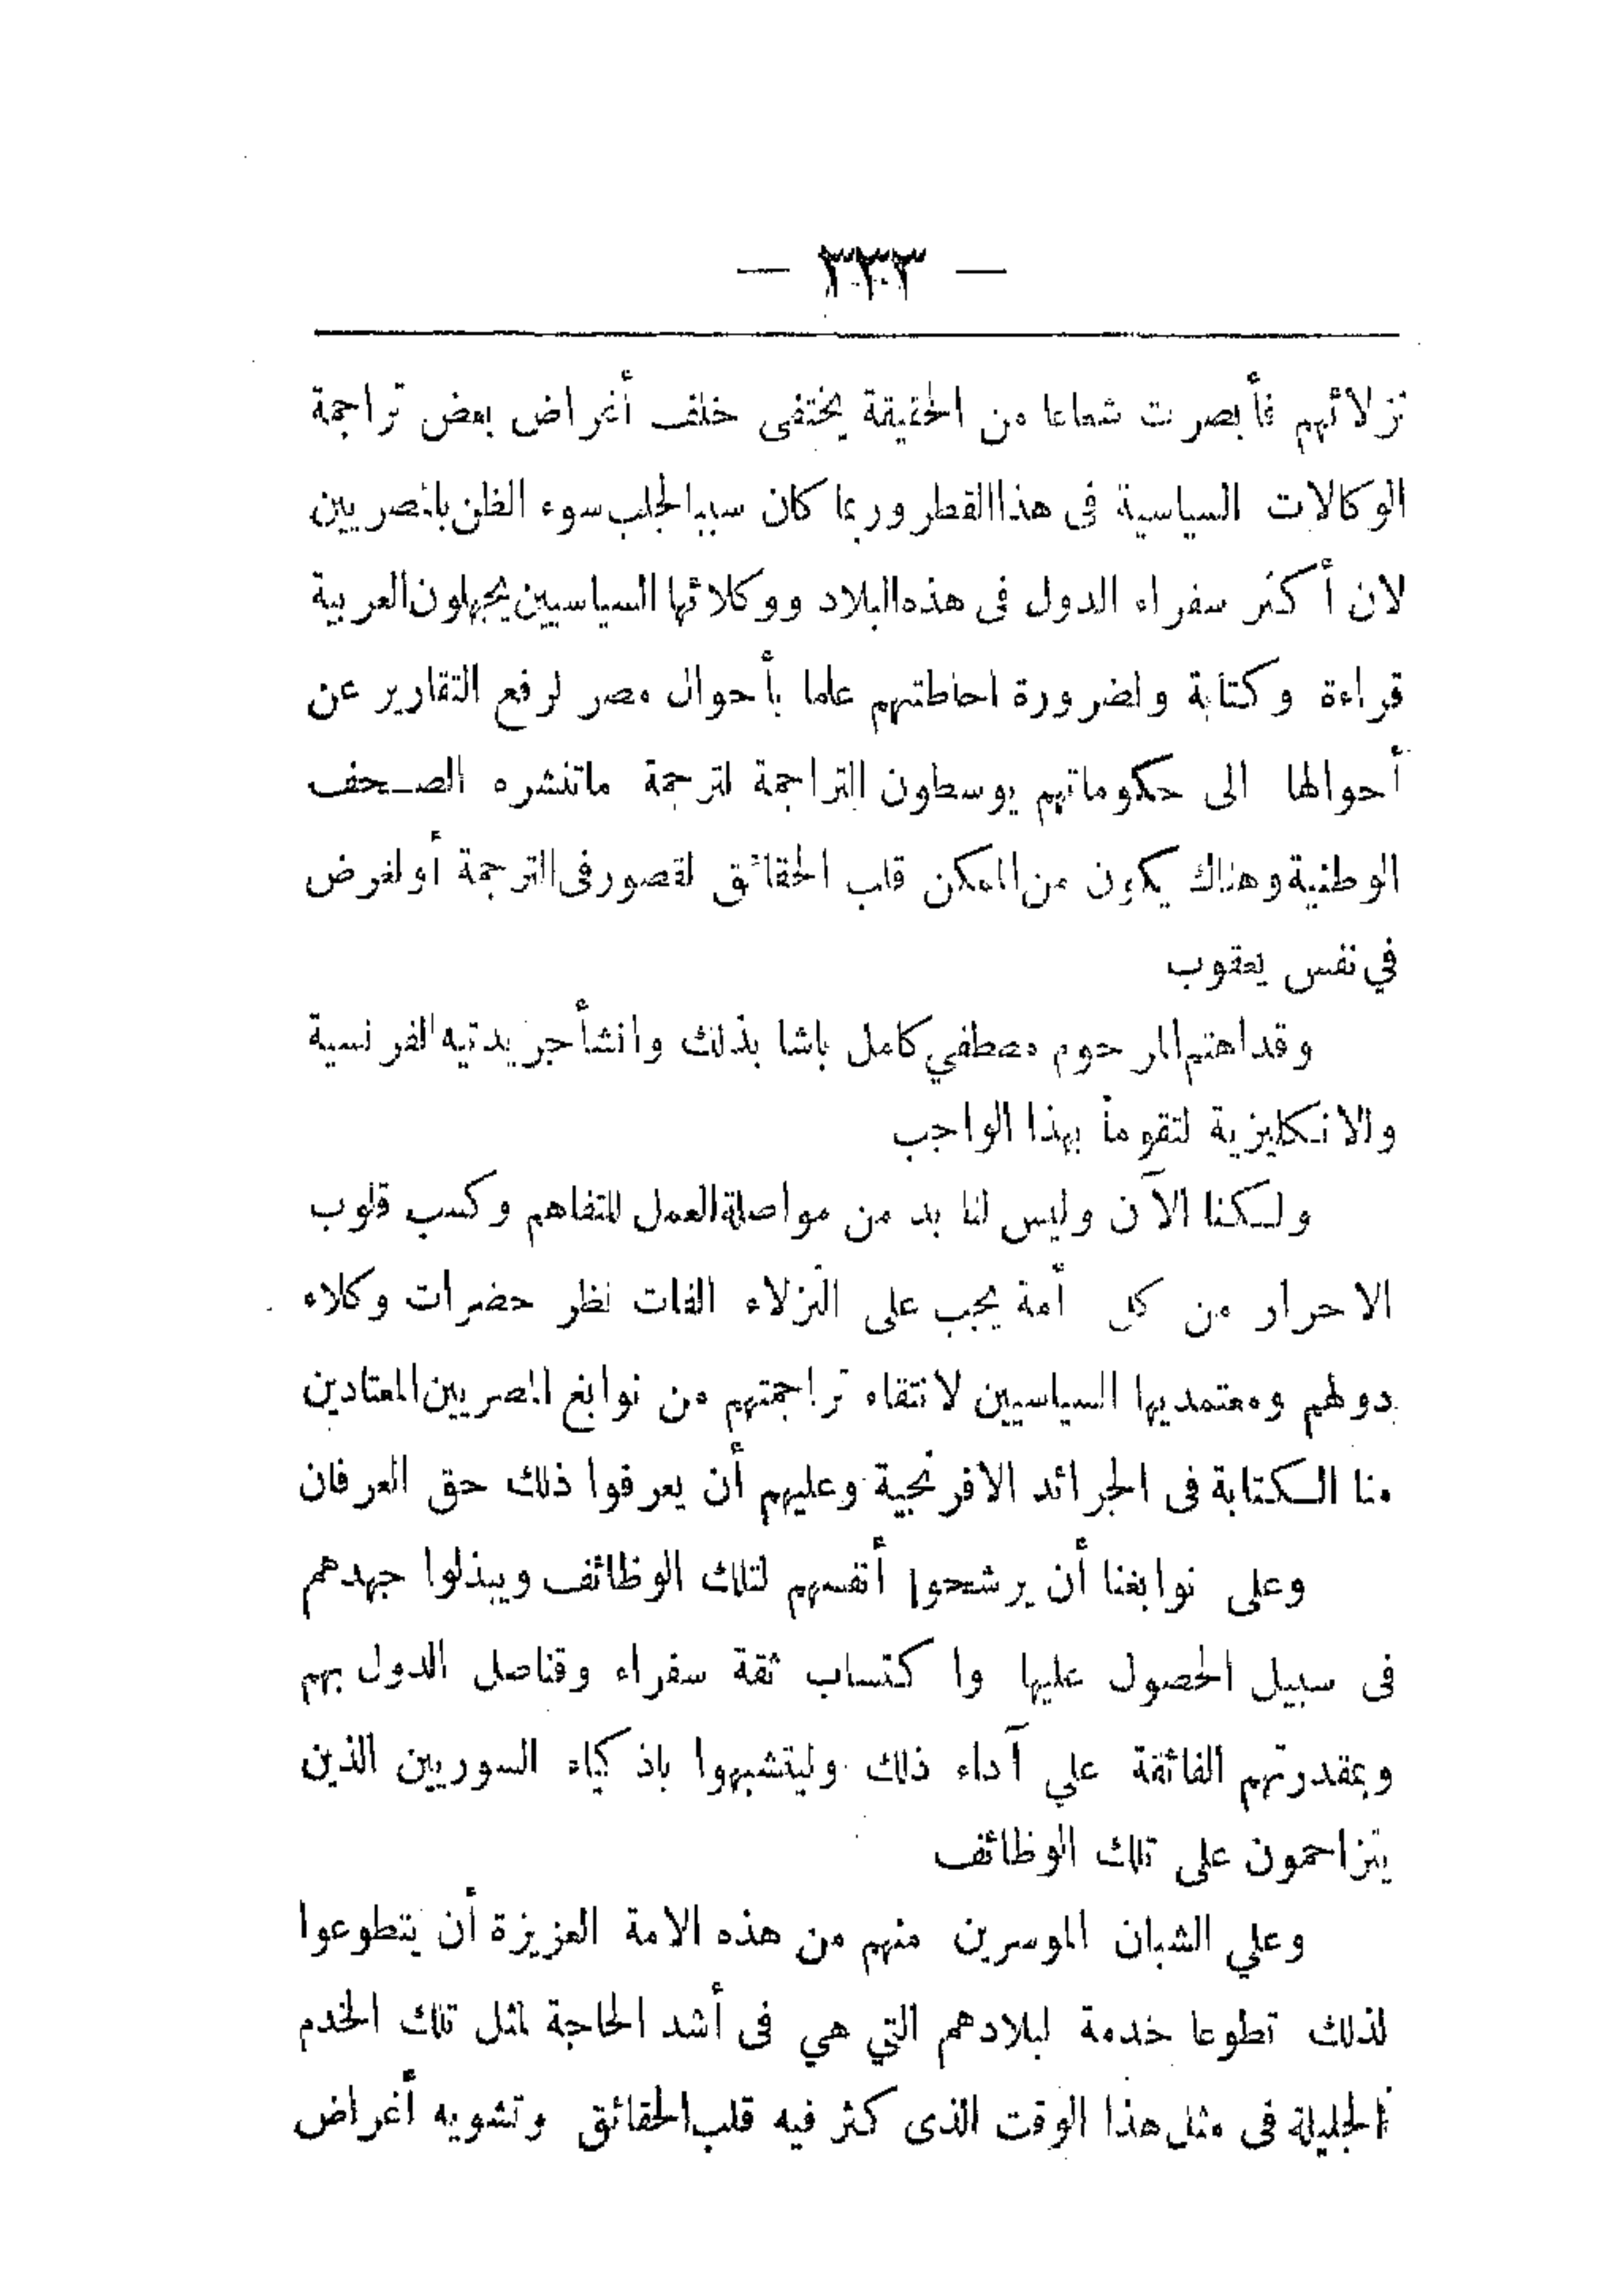 — ٣٣٣ —
نزلائهم فأبصرت شعاعا من الحقيقة يختفى خلف أغراض بعض تراجمة
الوكالات السياسية فى هذا القطر وربما كان سببا لجلب سوء الظن بالمصريين
لان أكثر سفراء الدول فى هذه البلاد ووكلائها السياسيين يجهلون العربية
قراءة وكتابة ولضرورة احاطتهم علما بأحوال مصر لرفع التقارير عن
أحوالها الى حكوماتهم يوسطون التراجمة لترجمة ماتنشره الصحف
الوطنية وهناك يكون من الممكن قلب الحقائق لقصور فى الترجمة أو لغرض
في نفس يعقوب
وقد اهتم المرحوم مصطفي كامل باشا بذلك وانشأ جريدتيه الفرنسية
والانكليزية لتقوما بهذا الواجب
ولكنا الآن وليس لنا بد من مواصلة العمل للتفاهم وكسب قلوب
الاحرار من كل أمة يجب على النزلاء الفات نظر حضرات وكلاء
دولهم ومعتمديها السياسيين لانتقاء تراجمتهم من نوابغ المصريين المعتادين
منا الكتابة فى الجرائد الافرنجية وعليهم أن يعرفوا ذلك حق العرفان
وعلى نوابغنا أن يرشحوا أنفسهم لتلك الوظائف ويبذلوا جهدهم
فى سبيل الحصول عليها واكتساب ثقة سفراء وقناصل الدول بهم
وبمقدرتهم الفائقة علي آداء ذلك وليتشبهوا باذكياء السوريين الذين
يتزاحمون على تلك الوظائف
وعلي الشبان الموسرين منهم من هذه الامة العزيزة أن يتطوعوا
لذلك تطوعا خدمة لبلادهم التي هي فى أشد الحاجة لمثل تلك الخدم
الجليلة فى مثل هذا الوقت الذى كثر فيه قلب الحقائق وتشويه أغراض